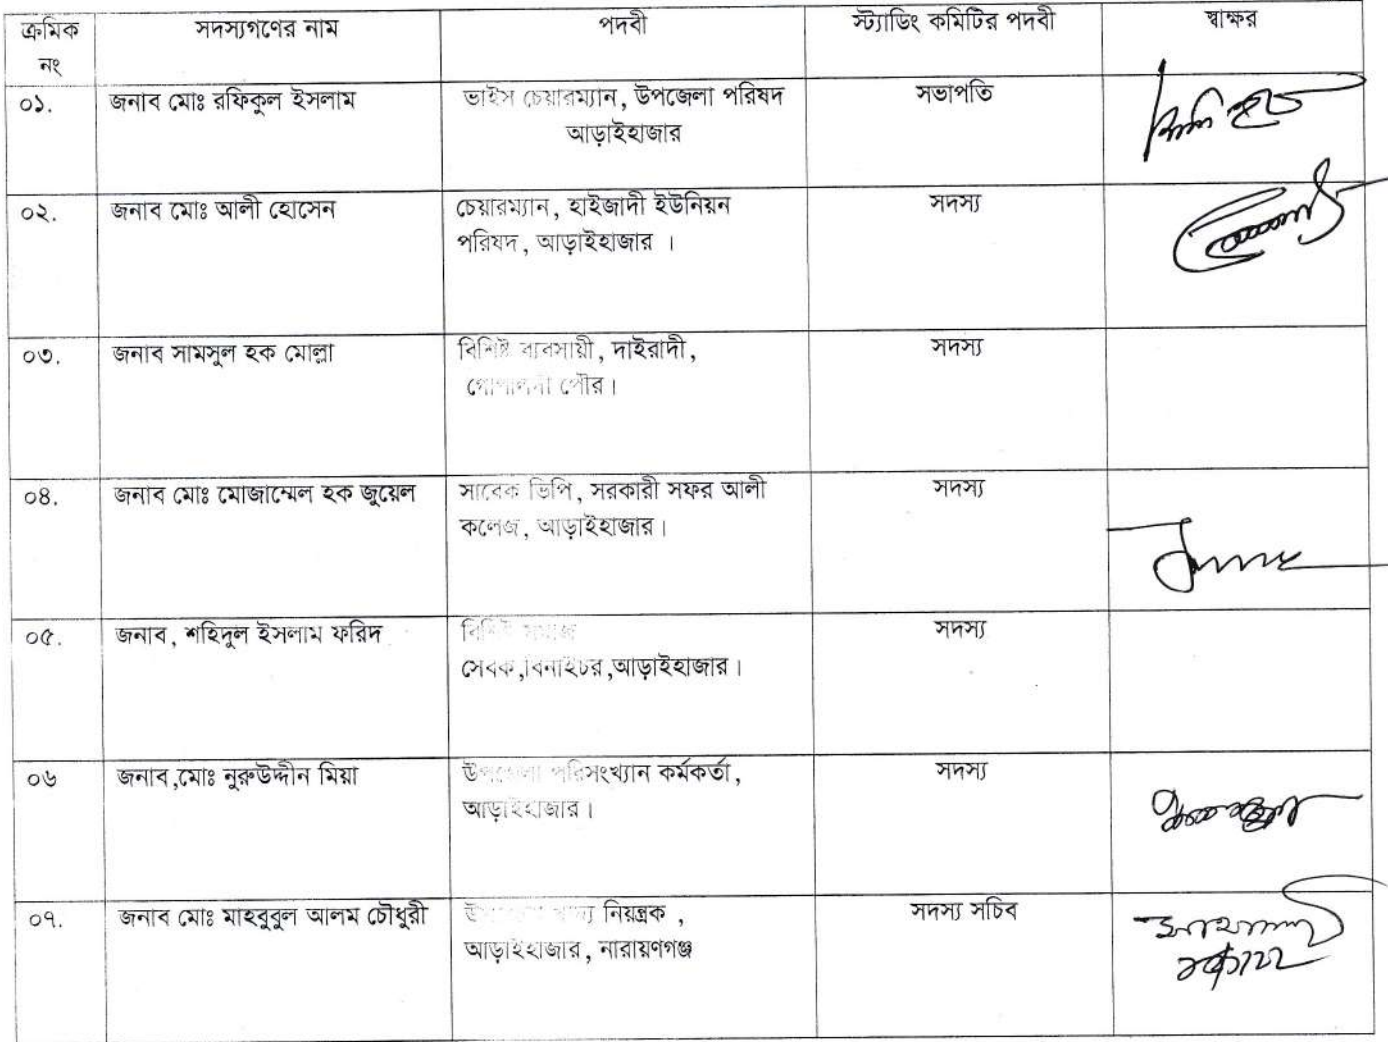 ক্রমিক নং সদস্যগণের নাম পদবী স্ট্যাডিং কমিটির পদবী স্বাক্ষর
০১. জনাব মোঃ রফিকুল ইসলাম ভাইস চেয়ারম্যান, উপজেলা পরিষদ সভাপতি
আড়াইহাজার
০২. জনাব মোঃ আলী হোসেন চেয়ারম্যান, হাইজাদী ইউনিয়ন সদস্য
পরিষদ, আড়াইহাজার ।
০৩. জনাব সামসুল হক মোল্লা বিশিষ্ট ব্যবসায়ী, দাইরাদী, সদস্য
গোপালদী পৌর।
০৪. জনাব মোঃ মোজাম্মেল হক জুয়েল সাবেক ভিপি, সরকারী সফর আলী সদস্য
কলেজ, আড়াইহাজার।
০৫. জনাব, শহিদুল ইসলাম ফরিদ বিশিষ্ট সমাজ সদস্য
সেবক,বিনাইচর,আড়াইহাজার।
০৬ জনাব,মোঃ নুরুউদ্দীন মিয়া উপজেলা পরিসংখ্যান কর্মকর্তা, সদস্য
আড়াইহাজার।
০৭. জনাব মোঃ মাহবুবুল আলম চৌধুরী উপজেলা খাদ্য নিয়ন্ত্রক , সদস্য সচিব
আড়াইহাজার, নারায়ণগঞ্জ